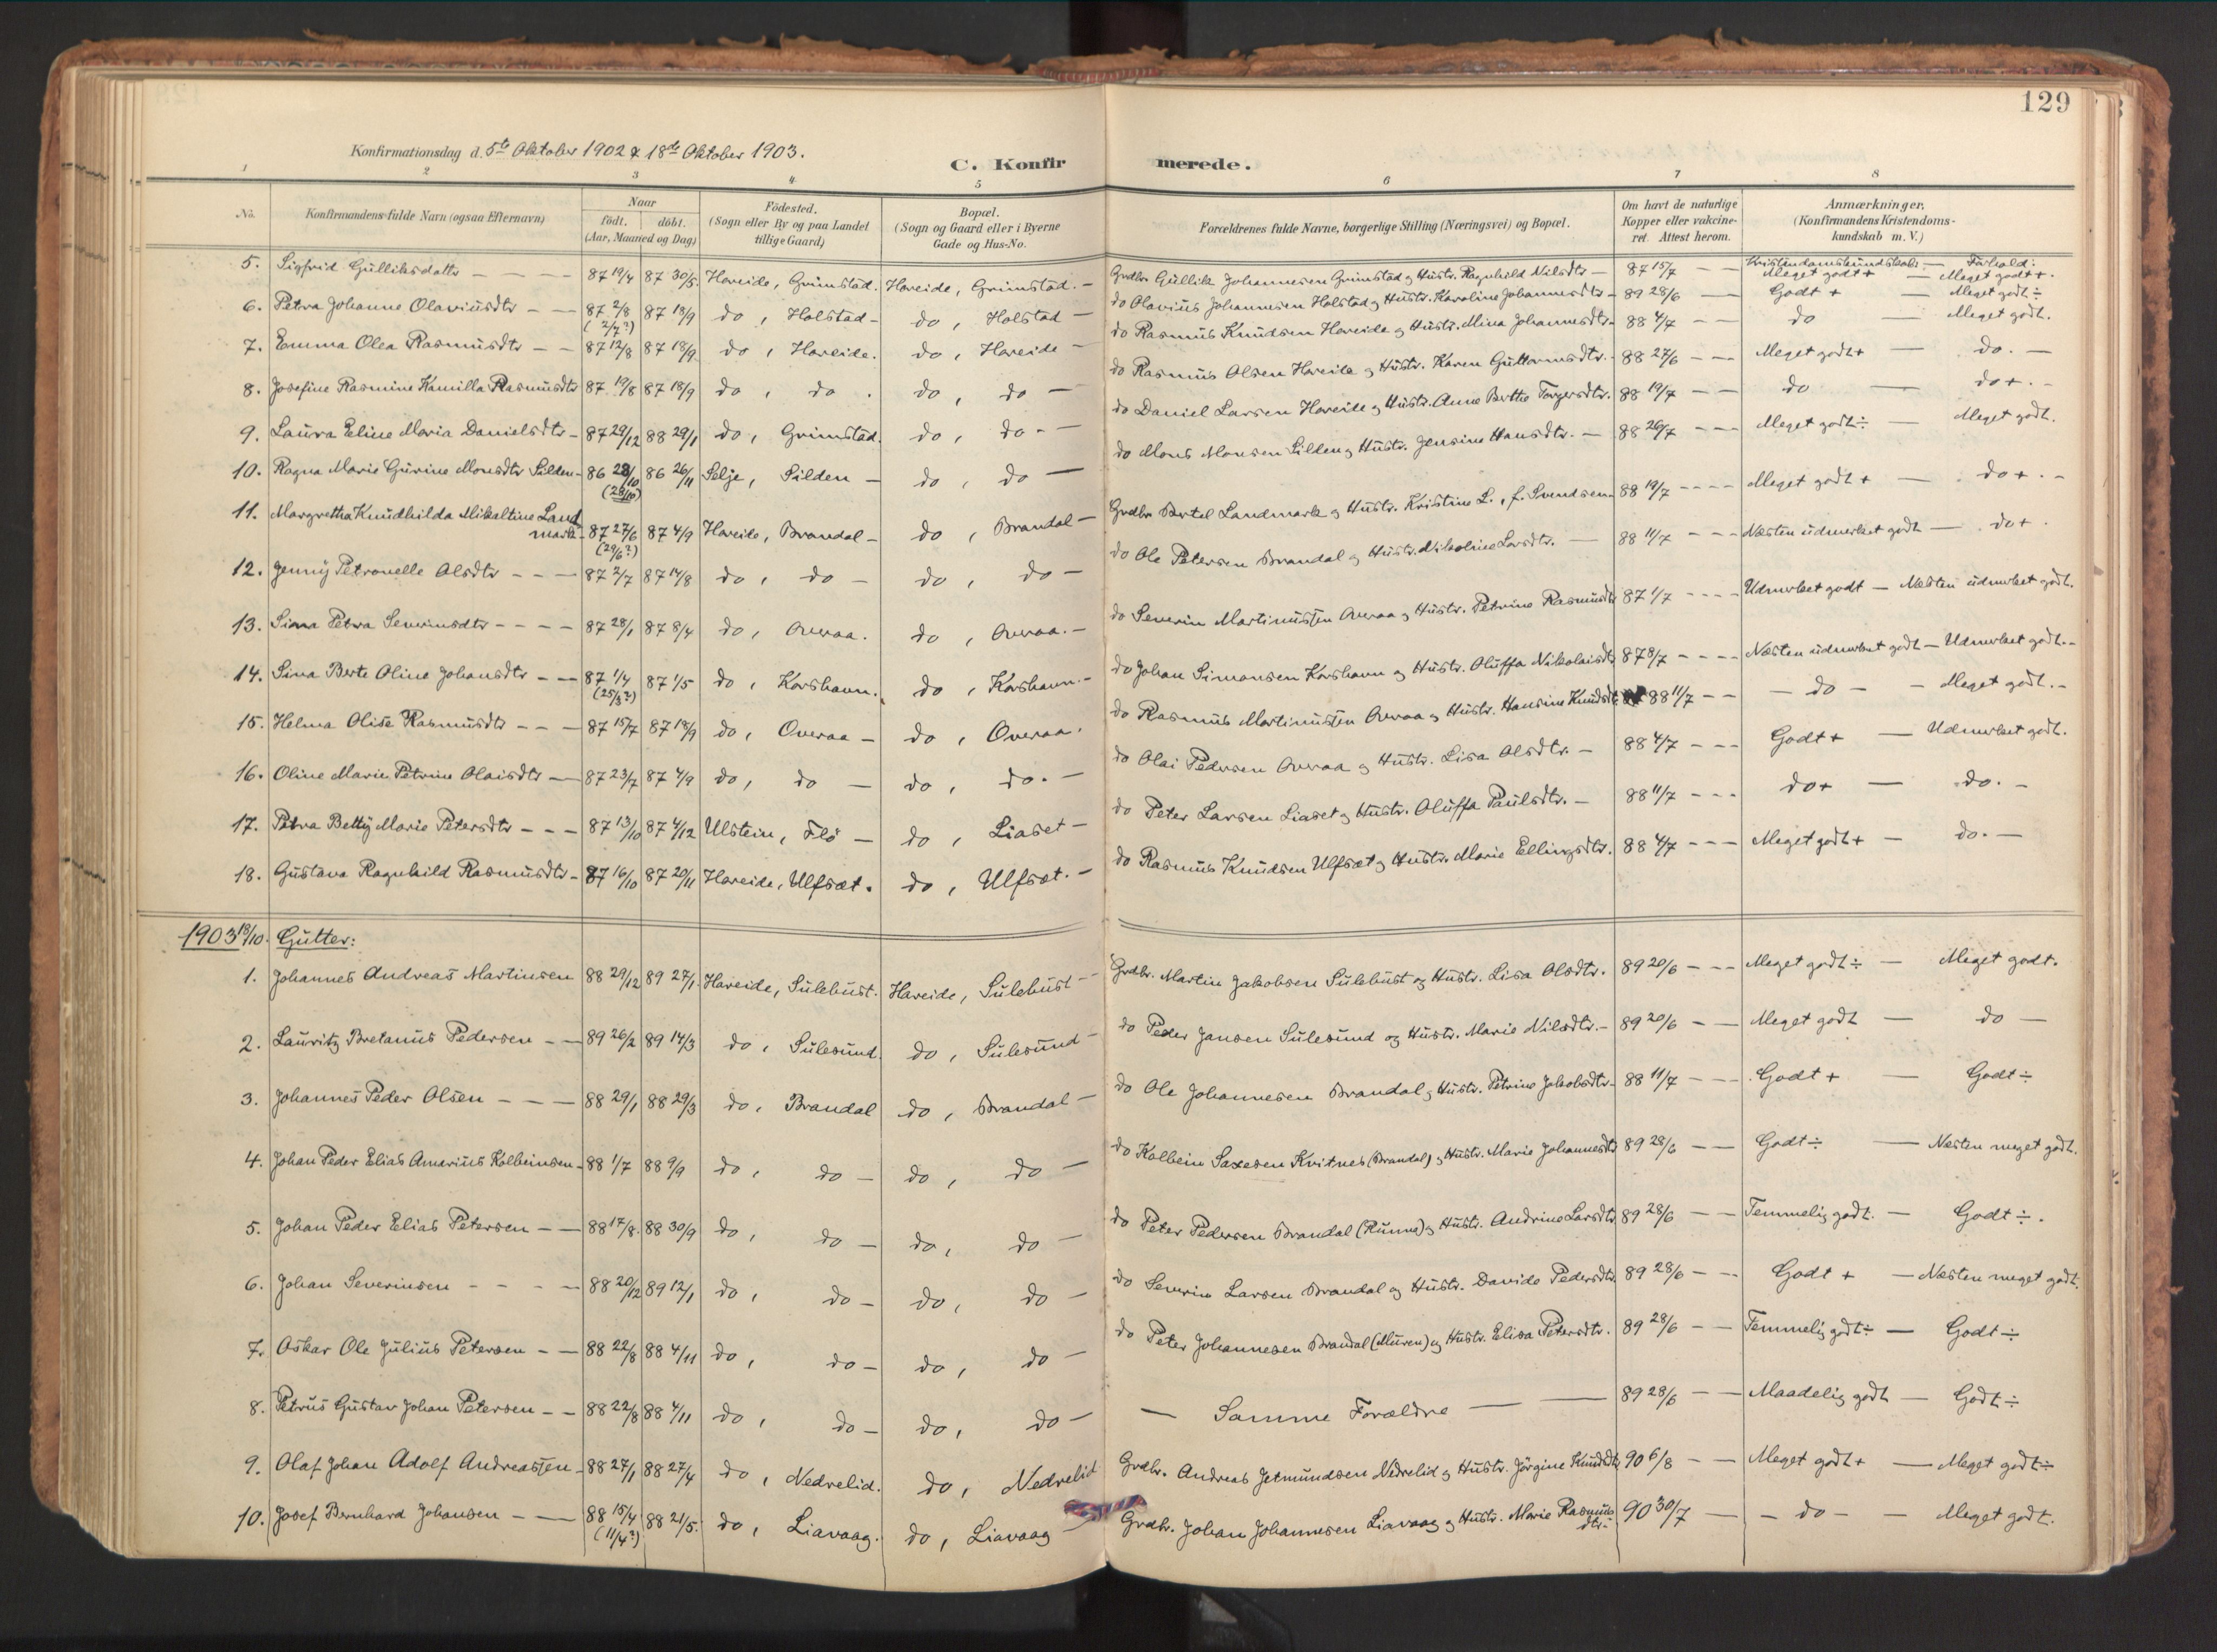 129
Konfirmationsdag d. 5te Oktober 1902 & 18de Oktober 1903.
C. Konfirmerede.
1 2 3 4 5 6 7 8
No. Konfirmandens fulde Navn (ogsaa Efternavn) Naar födt. döbt. (Aar, Maaned og Dag) Födested. (Sogn eller By og paa Landet tillige Gaard) Bopæl. (Sogn og Gaard eller i Byerne Gade og Hus-No. Forældrenes fulde Navne, borgerlige Stilling (Næringsvei) og Bopæl. Om havt de naturlige Kopper eller vakcineret. Attest herom. Anmærkninger, (Konfirmandens Kristendomskundskab m. V.)
Kristendomskundskab: — Forhold:
5. Sigfrid Gulliksdatter — 87 19/4 87 30/5 Hareide, Grimstad. Hareide, Grimstad. — Grdbr. Gullik Johannesen Grimstad og Hustr. Ragnhild Nilsdtr — 87 15/7 — Meget godt + — Meget godt +.
6. Petra Johanne Olaviusdtr — 87 2/8 (2/7?) 87 18/9 do, Holstad — do, Holstad — do Olavius Johannesen Holstad og Hustr. Karoline Johannesdtr — 89 28/6 — Godt + — Meget godt ÷
7. Emma Olea Rasmusdtr — 87 12/8 87 18/9 do, Hareide. do, Hareide — do Rasmus Knudsen Hareide og Hustr. Mina Johannesdtr — 88 4/7 — do — Meget godt.
8. Josefine Rasmine Kamilla Rasmusdtr 87 19/8 87 18/9 do, do. do, do — do Rasmus Olsen Hareide og Hustr. Karen Guttormsdtr. — 88 27/6 — Meget godt + — do. —
9. Laura Eline Maria Danielsdtr — 87 29/12 88 29/1 do, Grimstad. do, do. — do Daniel Larsen Hareide og Hustr. Anne Berthe Torgersdtr. 88 19/7 — do — do +. —
10. Ragna Marie Gurine Monsdtr Silden — 86 28/10 (28/10) 86 26/11 Selje, Silden — do, do — do Mons Monsen Silden og Hustr. Jensine Hansdtr. — 88 26/7 — Meget godt ÷ — Meget godt.
11. Margretha Knudhilda Mikaltine Landmark — 87 27/6 (29/6?) 87 4/9 Hareide, Brandal — do, Brandal — Grdbr. Bertel Landmark og Hustr. Kristine L., f. Svendsen — 88 19/7 — Meget godt + — do +. —
12. Jenny Petronelle Olsdtr — 87 2/7 87 14/8 do, do — do, do — do Ole Petersen Brandal og Hustr. Nikoline Larsdtr. — 88 11/7 — Næsten udmerket godt — do +.
13. Sina Petra Severinsdtr — 87 28/1 87 8/4 do, Overaa. do, Overaa. — do Severin Martinussen Overaa og Hustr. Petrine Rasmusdtr 87 1/7 — Udmerket godt — Næsten udmerket godt.
14. Sina Berte Oline Johansdtr — 87 1/4 (25/3?) 87 1/5 do, Korshavn. do, Korshavn. — do Johan Simonsen Korshavn og Hustr. Oluffa Nikolaisdtr 87 8/7 — Næsten udmerket godt — Udmerket godt. —
15. Helma Olise Rasmusdtr — 87 15/7 87 18/9 do, Overaa — do, Overaa. do Rasmus Martinussen Overaa og Hustr. Hansine Knudsdtr 88 11/7 — do — Meget godt. —
16. Oline Marie Petrine Olaisdtr — 87 23/7 87 4/9 do, do — do, do. — do Olai Pedersen Overaa og Hustr. Lisa Olsdtr. — 88 4/7 — Godt + — Udmerket godt.
17. Petra Betty Marie Petersdtr — 87 13/10 87 4/12 Ulstein, Flö — do, Liaset — do Peter Larsen Liaset og Hustr. Oluffa Paulsdtr. — 88 11/7 — do + — do. —
18. Gustava Ragnhild Rasmusdtr — 87 16/10 87 20/11 Hareide, Ulfsæt. do, Ulfsæt. — do Rasmus Knudsen Ulfsæt og Hustr. Marie Ellingsdtr. 88 4/7 — Meget godt + — do. —
1903 18/10. Gutter:
1. Johannes Andreas Martinsen 88 29/12 89 27/1 Hareide, Sulebust. Hareide, Sulebust — Grdbr. Martin Jakobsen Sulebust og Hustr. Lisa Olsdtr. 89 20/6 — Meget godt ÷ — Meget godt.
2. Lauritz Bretanus Pedersen — 89 26/2 89 14/3 do, Sulesund. do, Sulesund — do Peder Jansen Sulesund og Hustr. Marie Nilsdtr. — 89 20/6 — Meget godt — do —
3. Johannes Peder Olsen — 88 29/1 88 29/3 do, Brandal do, Brandal — do Ole Johannesen Brandal og Hustr. Petrine Jakobsdtr — 88 11/7 — Godt + — Godt ÷
4. Johan Peder Elias Amarius Kolbeinsen — 88 1/7 88 9/9 do, do — do, do — do Kolbein Saxesen Kvitnes (Brandal) og Hustr. Marie Johannesdtr 89 28/6 — Godt ÷ — Næsten meget godt.
5. Johan Peder Elias Petersen — 88 17/8. 88 30/9 do, do — do, do — do Peter Pedersen Brandal (Runne) og Hustr. Andrine Larsdtr 89 28/6 — Temmelig godt. — Godt ÷.
6. Johan Severinsen — 88 20/12 89 12/1 do, do — do, do — do Severin Larsen Brandal og Hustr. Davide Pedersdtr. 89 28/6 — Godt + — Næsten meget godt.
7. Oskar Ole Julius Petersen — 88 22/8 88 4/11 do, do — do, do — do Peter Johannesen Brandal (Muren) og Hustr. Elisa Petersdtr. 89 28/6 — Temmelig godt ÷ — Godt ÷
8. Petrus Gustav Johan Petersen — 88 22/8 88 4/11 do, do — do, do — — Samme Forældre — 89 28/6 — Maadelig godt — Godt ÷
9. Olaf Johan Adolf Andreassen — 88 27/1 88 27/4 do, Nedrelid. do, Nedrelid Grdbr. Andreas Jetmundsen Nedrelid og Hustr. Jörgine Knudsdtr 90 6/8 — Meget godt + — Meget godt ÷
10. Josef Bernhard Johansen — 88 15/4 (11/4?) 88 21/5. do, Liavaag. do, Liavaag — Grdbr. Johan Johannesen Liavaag og Hustr. Marie Rasmusdtr — 90 30/7 — do — Meget godt.